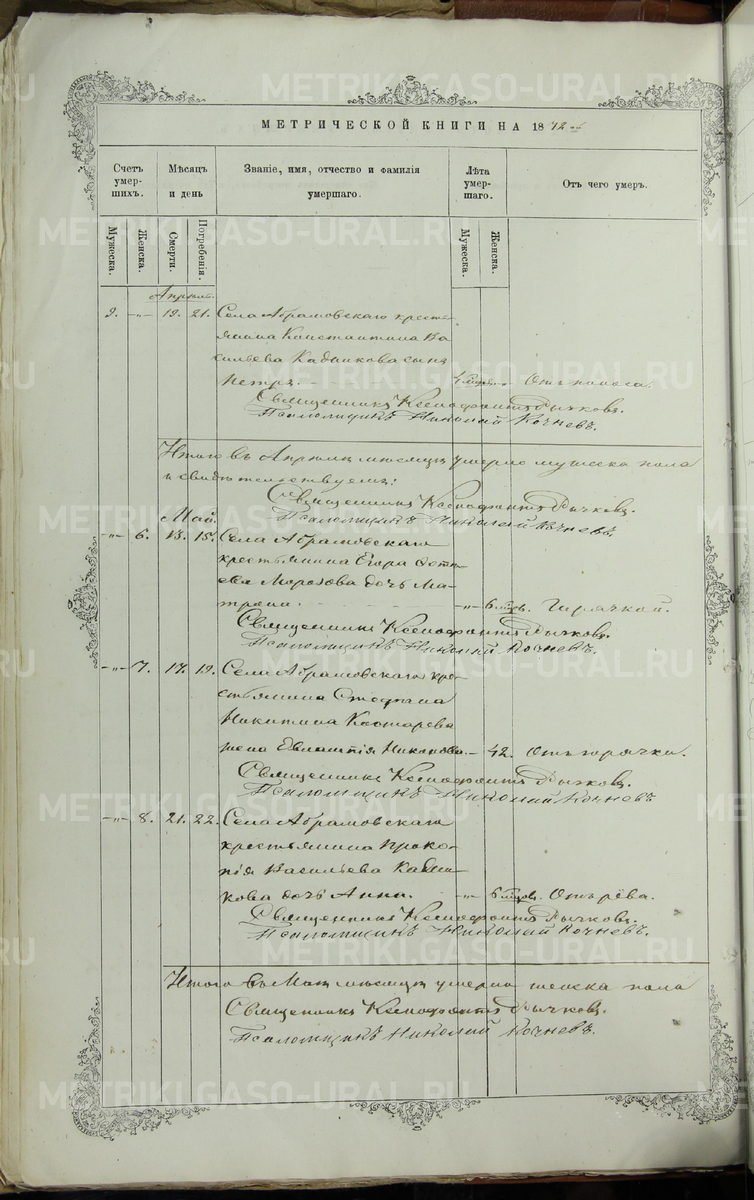 МЕТРИЧЕСКОЙ КНИГИ НА 18
Счетъ умершихъ.
Мѣсяцъ и день
Званіе, имя, отчество и фамилія умершаго.
Лѣта умершаго.
Отъ чего умеръ.
Мужеска.
Женска.
Смерти.
Погребенія.
Мужеска.
Женска.
Апрѣль.
9. -„- 19. 21. Села Абрамовскаго кресть-
янина Константина Ва
сильева Кадникова сынъ
Петръ. Отъ поноса.
Священникъ Ксенофонтъ Рычковъ.
Псаломщикъ Николай Кочневъ.
Итого въ Апрѣлѣ мѣсяцѣ умерло мужеска пола
свидѣтельствуемъ:
Священникъ Ксенофонтъ Рычковъ.
Псаломщикъ Николай Кочневъ.
Май.
-„- 6. 13. 15. Села Абрамовскаго
крестьянина Егора
Морозова дочь Ма-
трона. -„- 6 Горячкой.
Священникъ Ксенофонтъ Рычковъ.
Псаломщикъ Николай Кочневъ.
-„- 7. 17. 19. Села Абрамовскаго кре-
стьянина Стефана
Никитина Костарева
жена Евлампія Никонова. - 42. Отъ горячки.
Священникъ Ксенофонтъ Рычковъ.
Псаломщикъ Николай Кочневъ
-„- 8. 21. 22. Села Абрамовскаго
крестьянина Проко-
пія Васильева Кадни-
кова дочь Анна. -„- 6
Священникъ Ксенофонтъ Рычковъ.
Псаломщикъ Николай Кочневъ.
Итого въ Маѣ мѣсяцѣ умерло женска пола
Священникъ Ксенофонтъ Рычковъ.
Псаломщикъ Николай Кочневъ.
METRIKI.GASO-URAL.RU